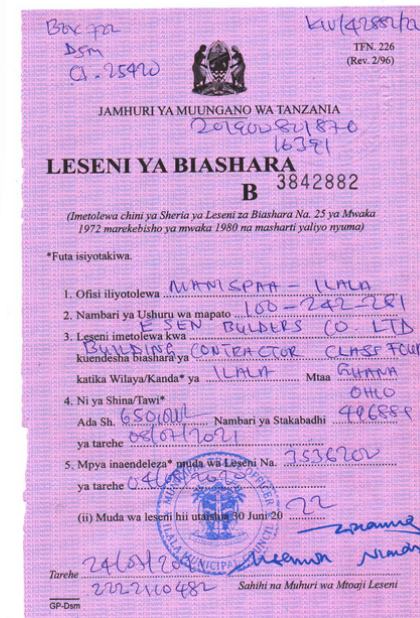 Box 772
Dsm
TFN. 226
(Rev. 2/96)
JAMHURI YA MUUNGANO WA TANZANIA
LESENI YA BIASHARA
B 3842882
(Imetolewa chini ya Sheria ya Leseni za Biashara Na. 25 ya Mwaka
1972 marekebisho ya mwaka 1980 na masharti yaliyo nyuma)
*Futa isiyotakiwa.
1. Ofisi iliyotolewa MANISPAA - ILALA
2. Nambari ya Ushuru wa mapato 100-242-281
3. Leseni imetolewa kwa ESEN BULDERS CO. LTD
kuendesha biashara ya BUILDING CONTRACTOR CLASS FOUR
katika Wilaya/Kanda* ya ILALA Mtaa GHANA
4. Ni ya Shina/Tawi* OHIO
Ada Sh. Nambari ya Stakabadhi
ya tarehe 08/07/2021
5. Mpya inaendeleza* muda wa Leseni Na.
ya tarehe
(ii) Muda wa leseni hii utaishia 30 Juni 20 22
ILALA MUNICIPAL COUNCIL
Tarehe
Sahihi na Muhuri wa Mtoaji Leseni
GP-Dsm